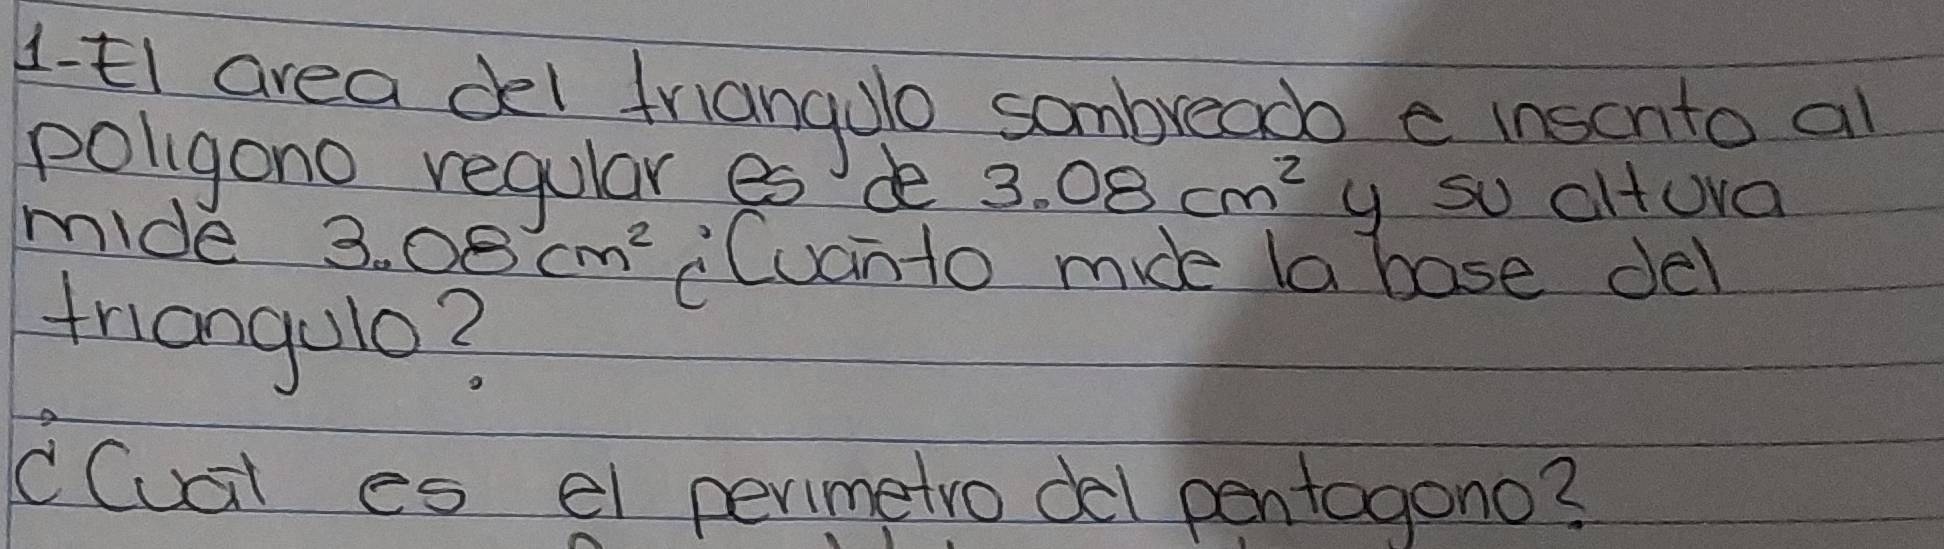 1-El area del triangulo sombreado e inscrito al
poligono regular es de 3.08 cm² y su altura
mide 3.08 cm² ¿Cuánto mide la base del
triangulo?
¿Cuál es el perimetro del pentagono?